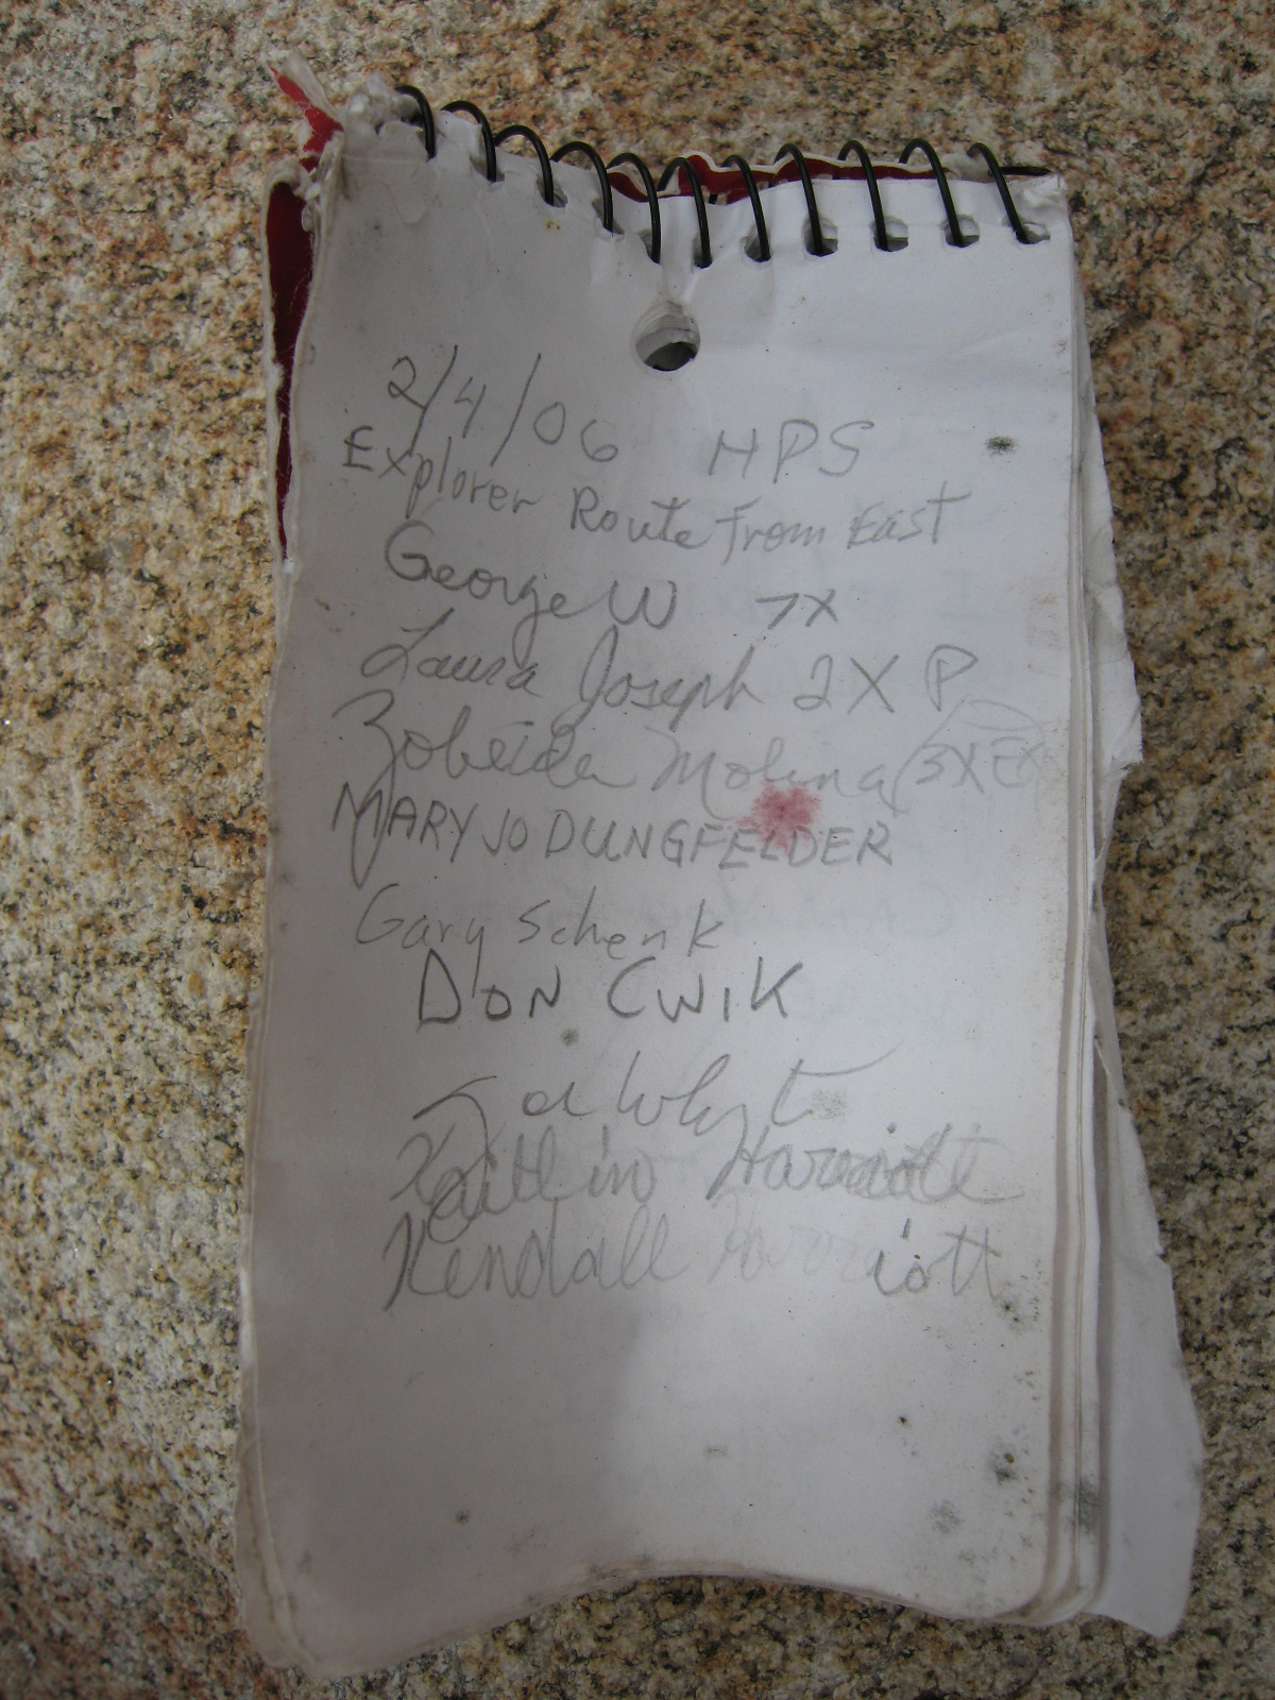 2/4/06 HPS
Explorer Route From East
George W 7X
Laura Joseph 2X P
Zobeida Molina (3X EX
MARY JO DUNGFELDER
Gary Schenk
DON CWIK
Kaitlin Harriott
Kendall Harriott